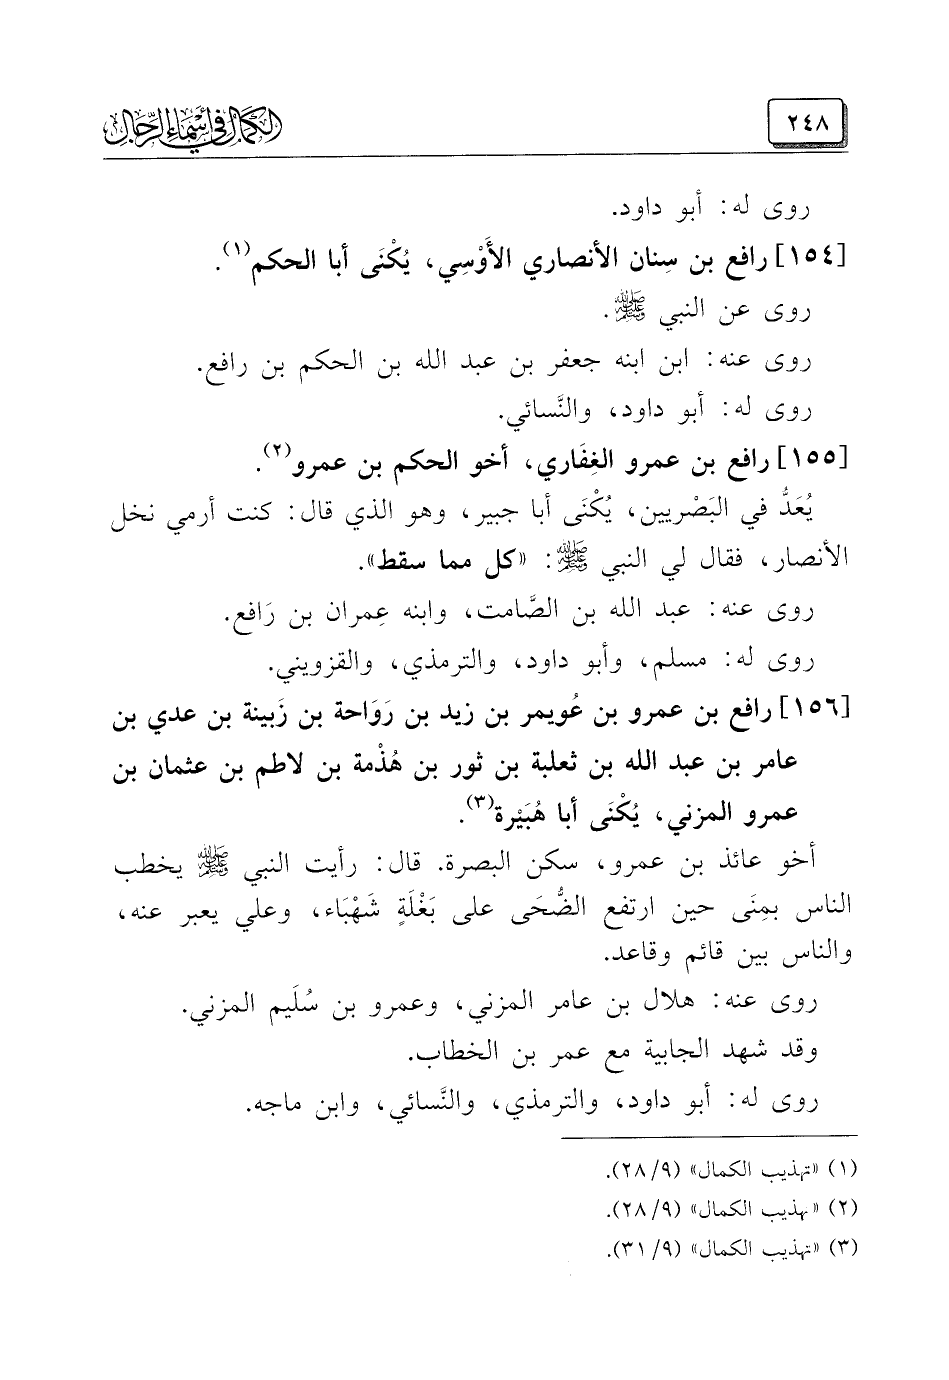 ٢٤٨
الكمال في أسماء الرجال
روى له: أبو داود.
[١٥٤] رافع بن سِنان الأنصاري الأَوْسِي، يُكْنَى أبا الحكم(١).
روى عن النبي ﷺ.
روى عنه: ابن ابنه جعفر بن عبد الله بن الحكم بن رافع.
روى له: أبو داود، والنَّسائي.
[١٥٥] رافع بن عمرو الغِفَاري، أخو الحكم بن عمرو(٢).
يُعَدُّ في البَصْريين، يُكْنَى أبا جبير، وهو الذي قال: كنت أرمي نخل
الأنصار، فقال لي النبي ﷺ: «كل مما سقط».
روى عنه: عبد الله بن الصَّامت، وابنه عِمران بن رَافع.
روى له: مسلم، وأبو داود، والترمذي، والقزويني.
[١٥٦] رافع بن عمرو بن عُويمر بن زيد بن رَوَاحة بن زَبينة بن عدي بن
عامر بن عبد الله بن ثعلبة بن ثور بن هُذْمة بن لاطم بن عثمان بن
عمرو المزني، يُكْنَى أبا هُبَيْرة(٣).
أخو عائذ بن عمرو، سكن البصرة. قال: رأيت النبي ﷺ يخطب
الناس بمِنَى حين ارتفع الضُّحَى على بَغْلَةٍ شَهْبَاء، وعلي يعبر عنه،
والناس بين قائم وقاعد.
روى عنه: هلال بن عامر المزني، وعمرو بن سُلَيم المزني.
وقد شهد الجابية مع عمر بن الخطاب.
روى له: أبو داود، والترمذي، والنَّسائي، وابن ماجه.
(١) «تهذيب الكمال» (٩/ ٢٨).
(٢) «تهذيب الكمال» (٩/ ٢٨).
(٣) «تهذيب الكمال» (٩/ ٣١).